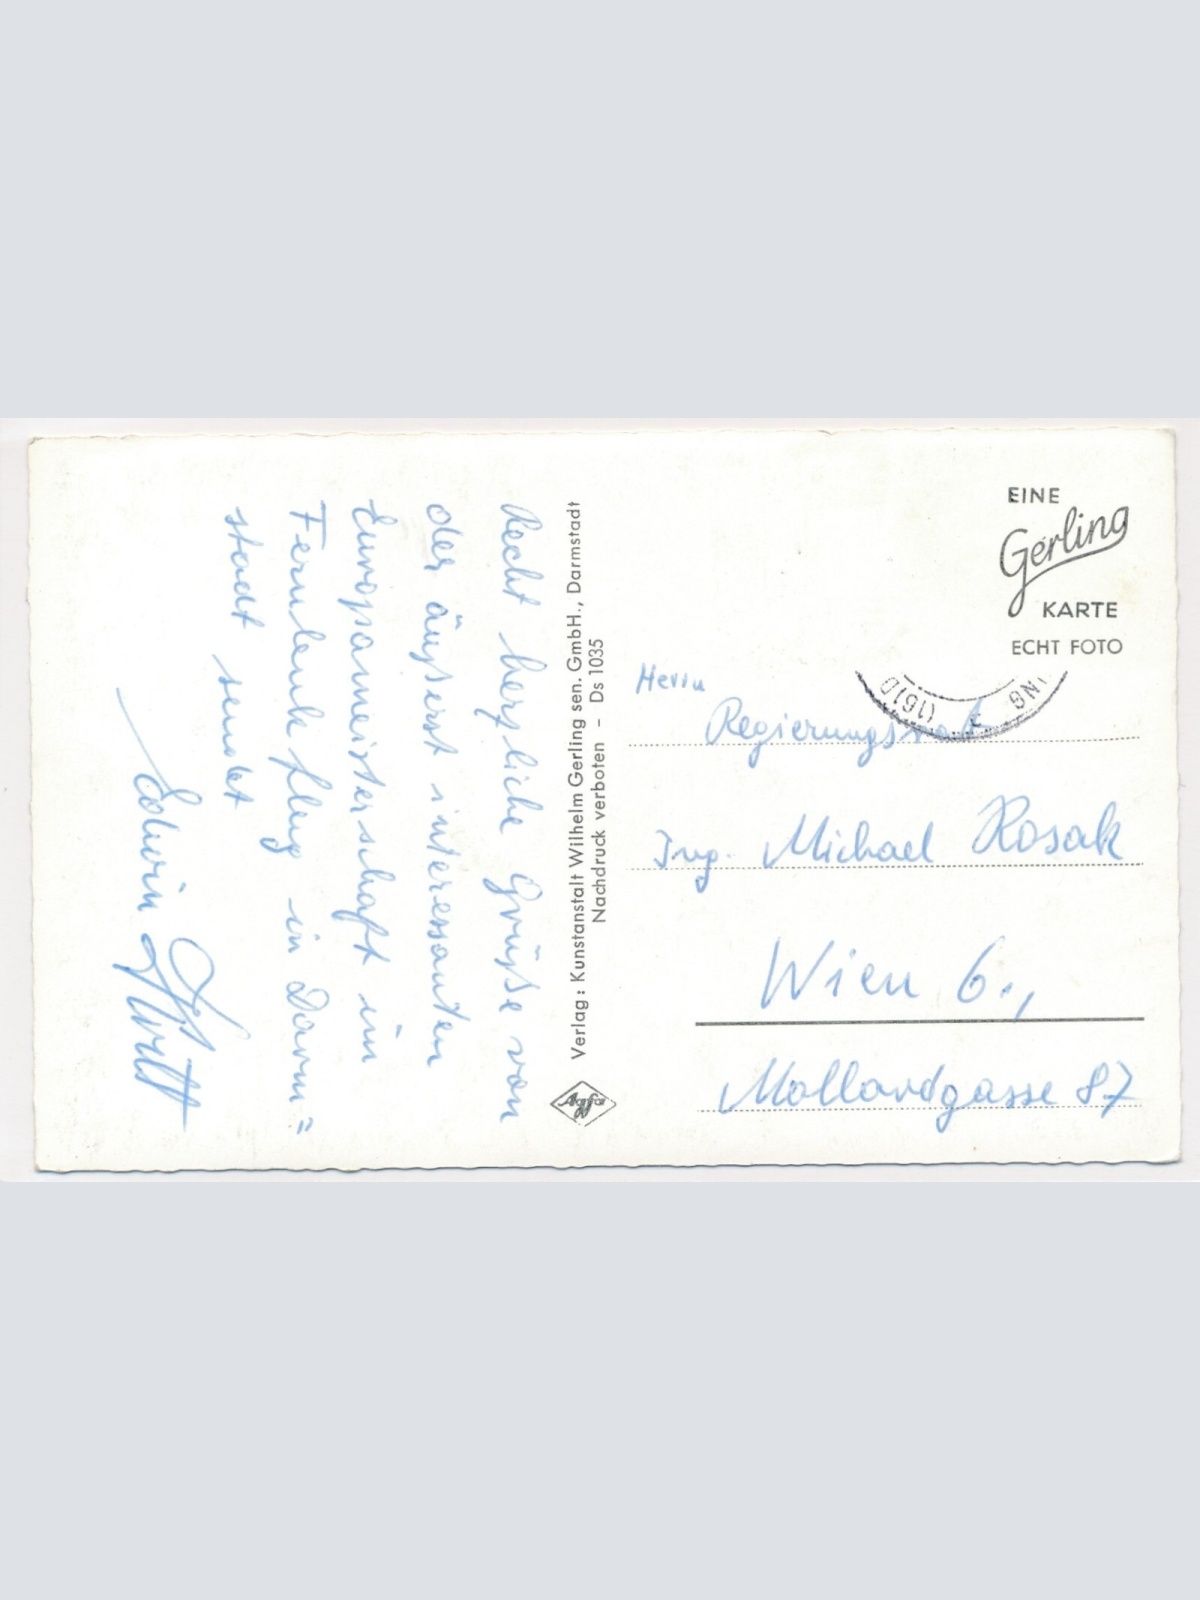 Recht herzliche Grüsse von
der äusserst interessanten
Europameisterschaft im
Fernlenkflug in Darm=
stadt sendet
Edwin
Verlag: Kunstanstalt Wilhelm Gerling sen. GmbH., Darmstadt
Nachdruck verboten – Ds 1035
Agfa
EINE
Gerling
KARTE
ECHT FOTO
(16)D
NG
Herrn
Regierungsrat
Ing. Michael Rosak
Wien 6.,
Mollardgasse 87